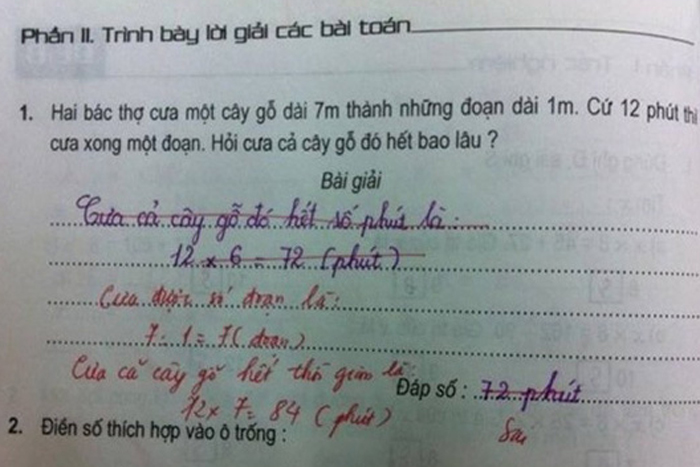 Phần II. Trình bày lời giải các bài toán
1. Hai bác thợ cưa một cây gỗ dài 7m thành những đoạn dài 1m. Cứ 12 phút thì
cưa xong một đoạn. Hỏi cưa cả cây gỗ đó hết bao lâu ?
Bài giải
Cưa cả cây gỗ đó hết số phút là :
12 x 6 = 72 (phút)
Cưa được số đoạn là:
7 : 1 = 7 (đoạn)
Cưa cả cây gỗ hết thời gian là:
12 x 7 = 84 (phút)
Đáp số : 72 phút
Sai
2. Điền số thích hợp vào ô trống :